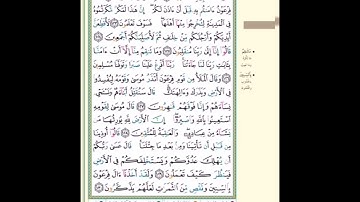 فِرْعَوْنُ ءَامَنتُم بِهِۦ قَبْلَ أَنْ ءَاذَنَ لَكُمْ إِنَّ هَٰذَا لَمَكْرٌ مَّكَرْتُمُوهُ
فِى ٱلْمَدِينَةِ لِتُخْرِجُوا۟ مِنْهَآ أَهْلَهَا فَسَوْفَ تَعْلَمُونَ ١٢٣ لَأُقَطِّعَنَّ
أَيْدِيَكُمْ وَأَرْجُلَكُم مِّنْ خِلَٰفٍ ثُمَّ لَأُصَلِّبَنَّكُمْ أَجْمَعِينَ ١٢٤
قَالُوٓا۟ إِنَّآ إِلَىٰ رَبِّنَا مُنقَلِبُونَ ١٢٥ وَمَا تَنقِمُ مِنَّآ إِلَّآ أَنْ ءَامَنَّا
بِـَٔايَٰتِ رَبِّنَا لَمَّا جَآءَتْنَا رَبَّنَآ أَفْرِغْ عَلَيْنَا صَبْرًا وَتَوَفَّنَا مُسْلِمِينَ
١٢٦ وَقَالَ ٱلْمَلَأُ مِن قَوْمِ فِرْعَوْنَ أَتَذَرُ مُوسَىٰ وَقَوْمَهُۥ لِيُفْسِدُوا۟
فِى ٱلْأَرْضِ وَيَذَرَكَ وَءَالِهَتَكَ قَالَ سَنُقَتِّلُ أَبْنَآءَهُمْ وَنَسْتَحْىِۦ
نِسَآءَهُمْ وَإِنَّا فَوْقَهُمْ قَٰهِرُونَ ١٢٧ قَالَ مُوسَىٰ لِقَوْمِهِ
ٱسْتَعِينُوا۟ بِٱللَّهِ وَٱصْبِرُوٓا۟ إِنَّ ٱلْأَرْضَ لِلَّهِ يُورِثُهَا مَن
يَشَآءُ مِنْ عِبَادِهِۦ وَٱلْعَٰقِبَةُ لِلْمُتَّقِينَ ١٢٨ قَالُوٓا۟ أُوذِينَا
مِن قَبْلِ أَن تَأْتِيَنَا وَمِنۢ بَعْدِ مَا جِئْتَنَا قَالَ عَسَىٰ رَبُّكُمْ
أَن يُهْلِكَ عَدُوَّكُمْ وَيَسْتَخْلِفَكُمْ فِى ٱلْأَرْضِ
فَيَنظُرَ كَيْفَ تَعْمَلُونَ ١٢٩ وَلَقَدْ أَخَذْنَآ ءَالَ فِرْعَوْنَ
بِٱلسِّنِينَ وَنَقْصٍ مِّنَ ٱلثَّمَرَٰتِ لَعَلَّهُمْ يَذَّكَّرُونَ ١٣٠